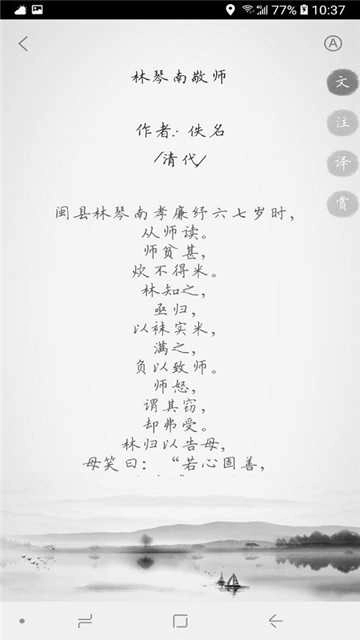 77% 10:37
A
林琴南敬师
文
作者：佚名
注
/清代/
译
赏
闽县林琴南孝廉纾六七岁时，
从师读。
师贫甚，
炊不得米。
林知之，
亟归，
以袜实米，
满之，
负以致师。
师怒，
谓其窃，
却弗受。
林归以告母，
母笑曰：“若心固善，